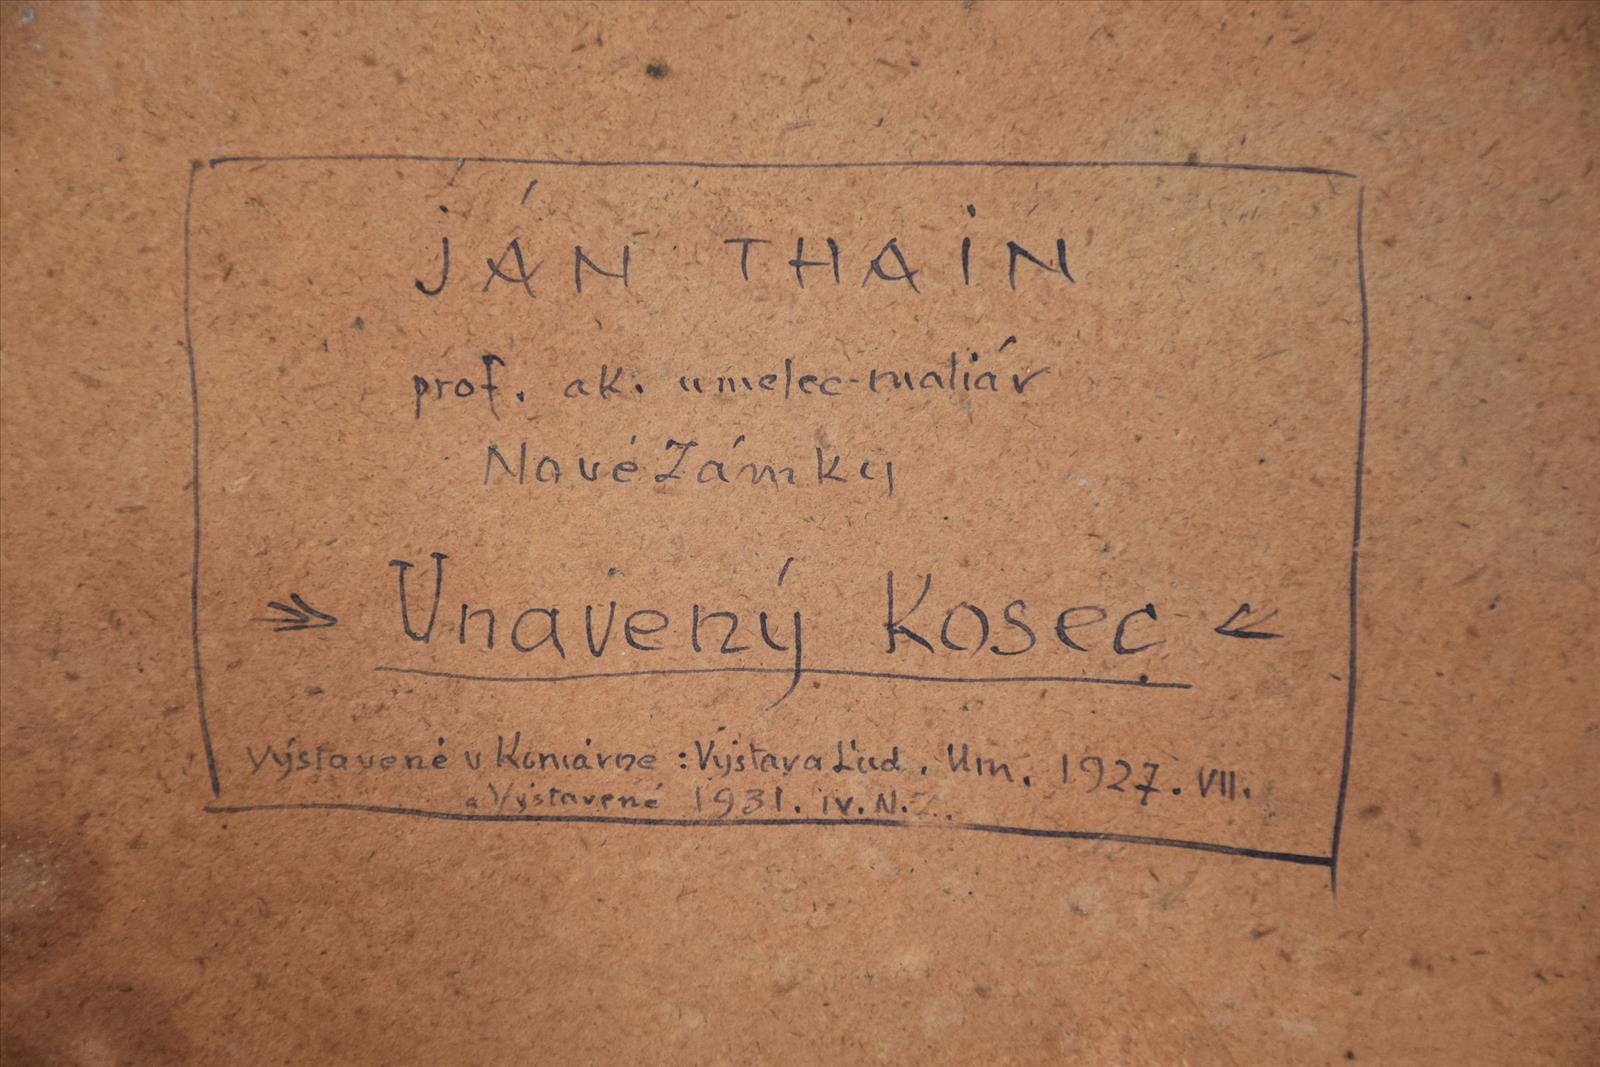 JÁN THAIN
prof. ak. umelec-maliár
Nové Zámky
Unavený Kosec
Výstavené v Komárne : Výstava Ľud. Um. 1927. VII.
a Výstavené 1931. IV. N.Z.